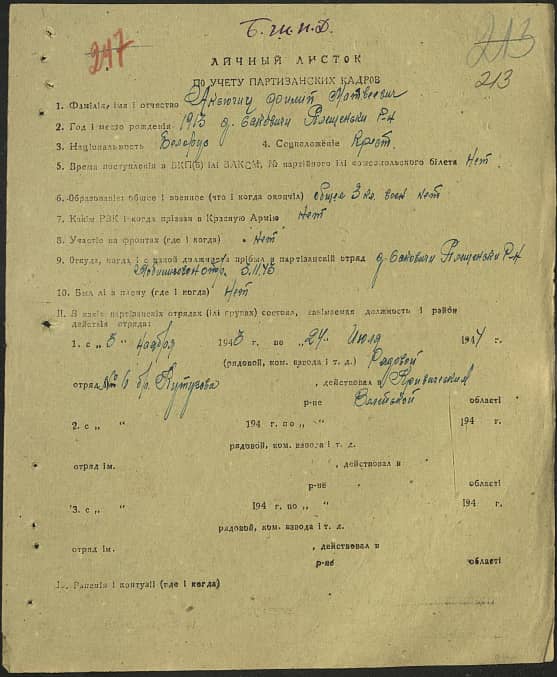 Б.Ш.П.Д.
247
213
213
ЛИЧНЫЙ ЛИСТОК
ПО УЧЕТУ ПАРТИЗАНСКИХ КАДРОВ
1. Фамилія, імя і отчество Матвеевич
2. Год і место рождения 1913 д. Плещеньки Р-н
3. Національность Белорус 4. Соцположение Крест.
5. Время поступления в ВКП(б) ілі ВЛКСМ, № партійного ілі комсомольского білета Нет.
6. Образованіе: общее і военное (что і когда окончіл) общее 3 кл. воен нет
7. Какім РВК і когда прізван в Красную Армію Нет
8. Участіе на фронтах (где і когда) Нет
9. Откуда, когда і с какой должності прібыл в партізанскій отряд д. Плещеньки Р-н
3.11.43
10. Был лі в плену (где і когда) Нет
11. В какіх партізанскіх отрядах (ілі групах) состоял, занімаемая должность і район
действія отряда:
1. с „3 " Ноября 1943 г. по „24 „ Июля 1944 г.
(рядовой, ком. взвода і т. д.) Рядовой
отряд №6 бр. Кутузова , действовал в Кривическим
р-не Вилейской області
2. с „ " 194 г. по „ „ 194 г.
рядовой, ком. взвода і т. д.
отряд ім. , действовал в
р-не області
3. с „ " 194 г. по „ " 194 г.
рядовой, ком. взвода і т. д.
отряд ім. , действовал в
р-не області
Ранения і контузіі (где і когда)